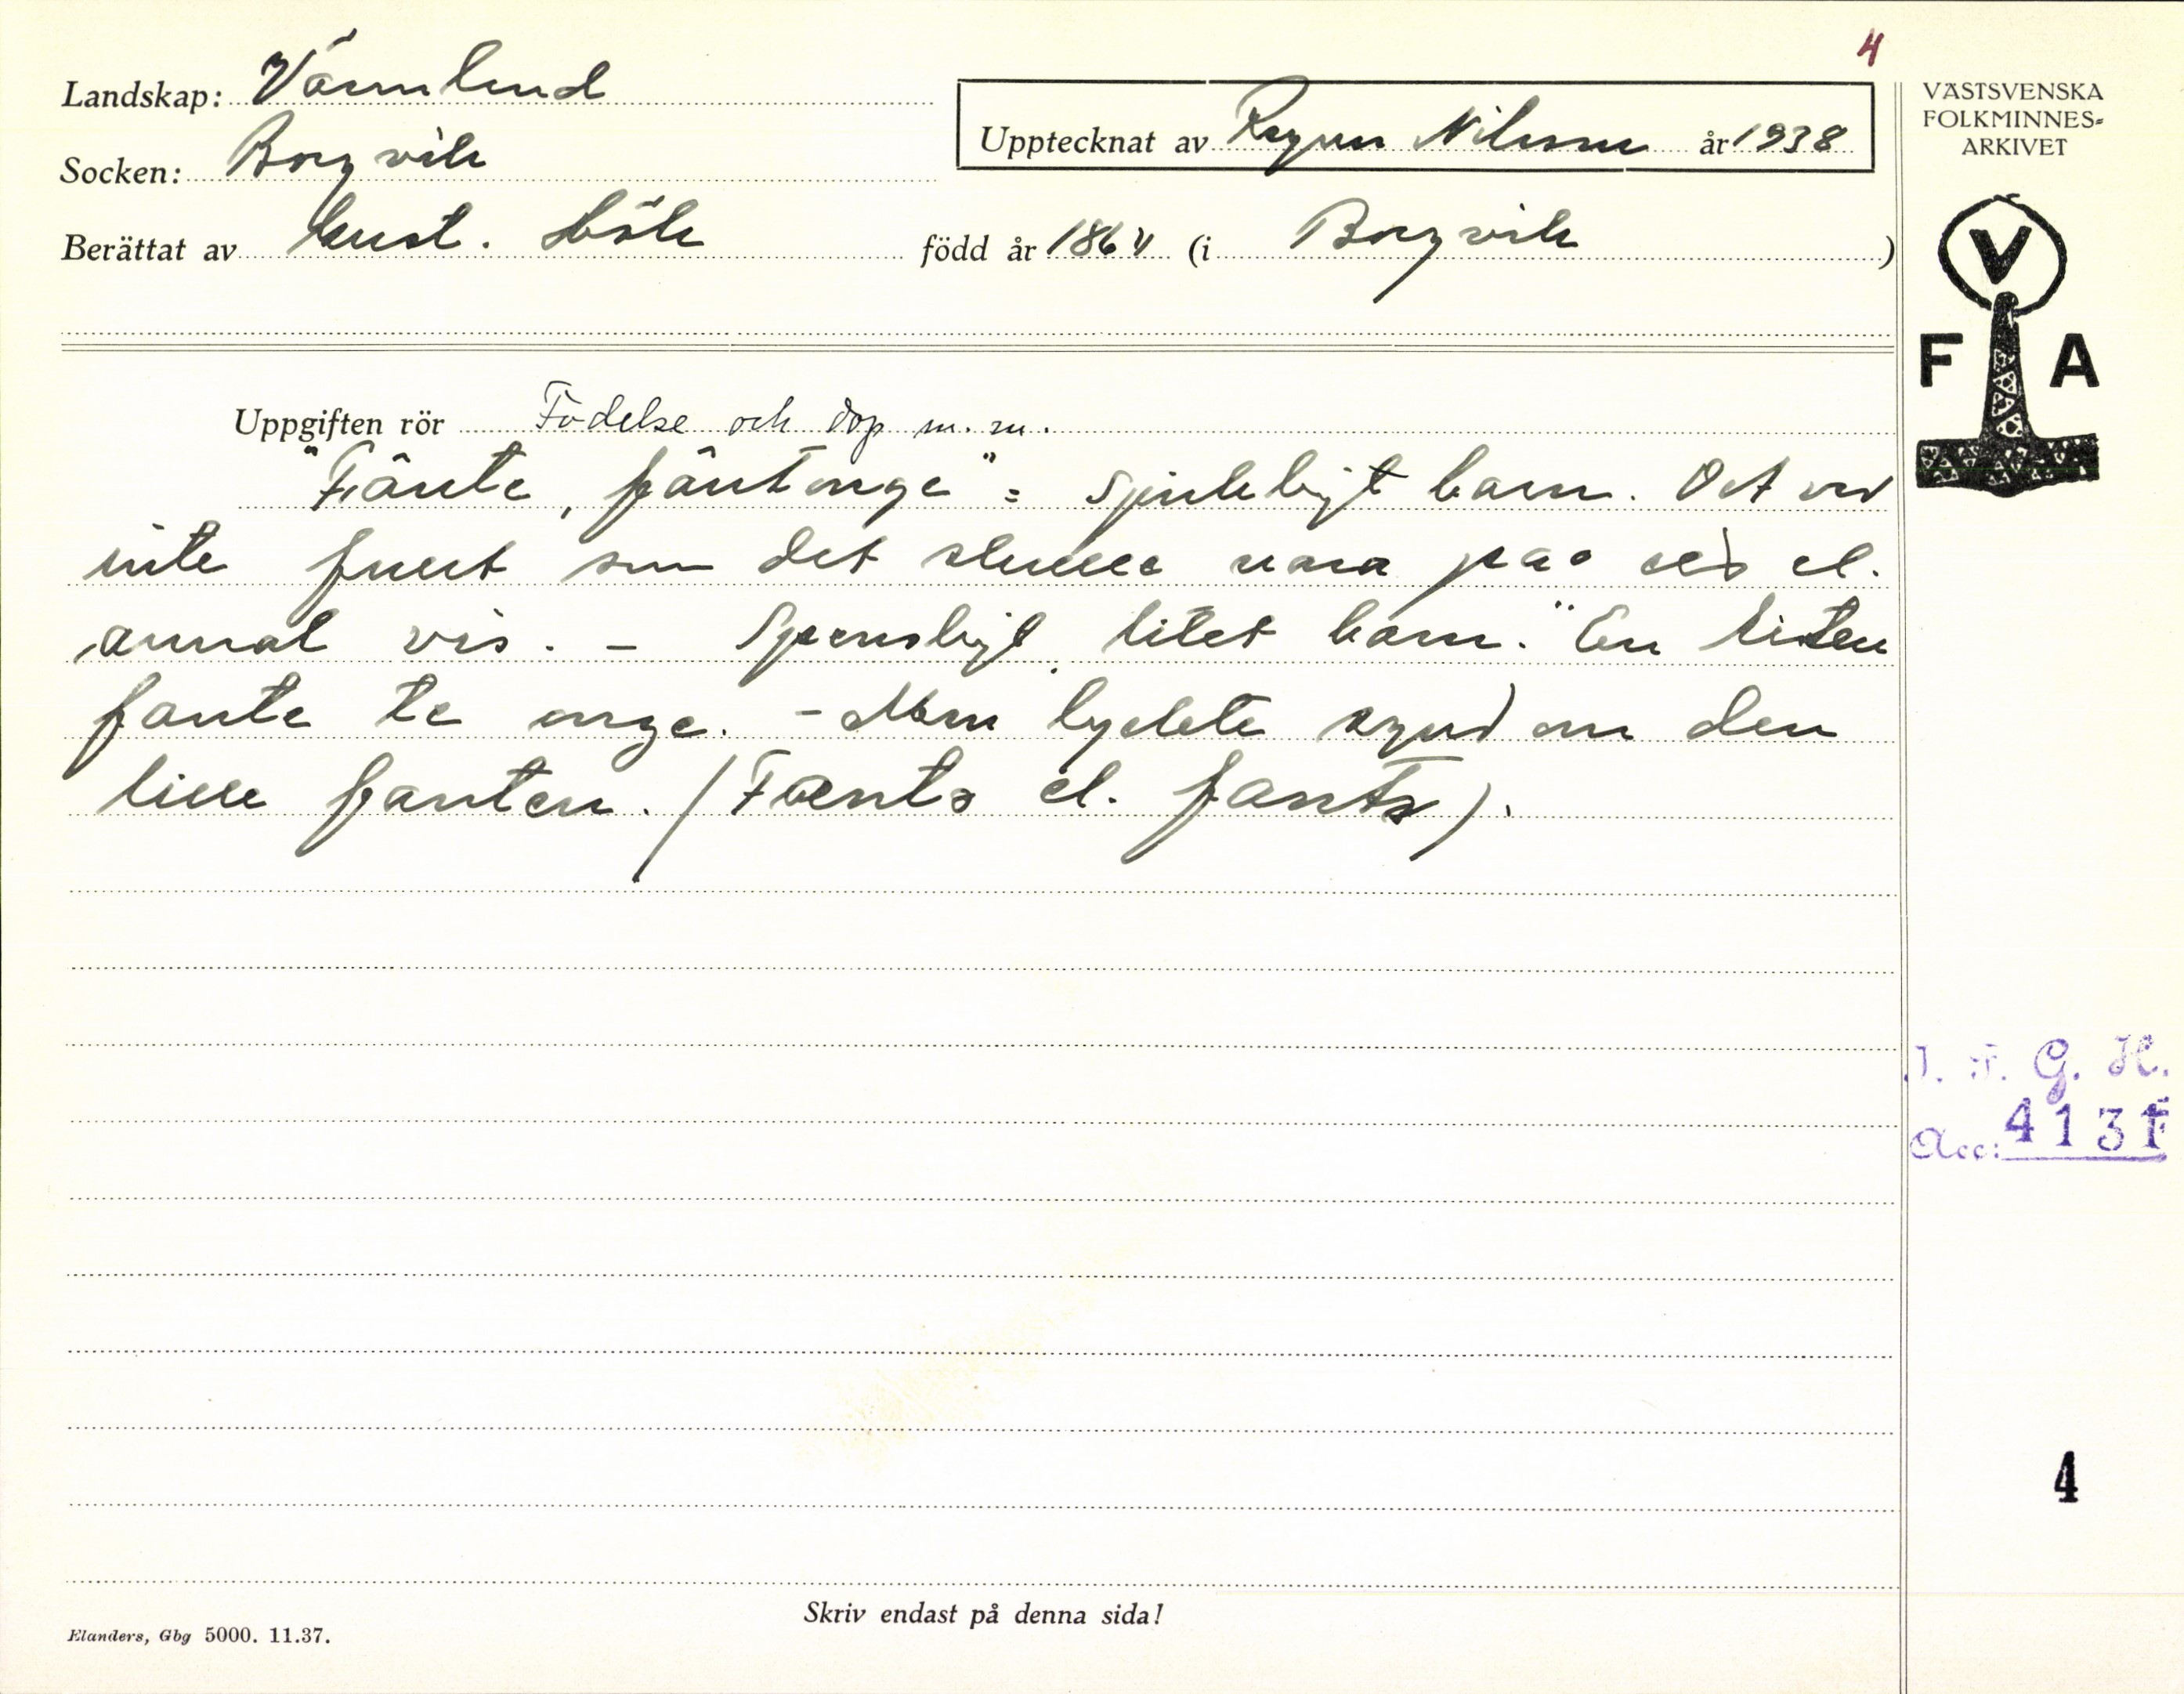 4
Landskap: Värmland
Socken: Borgvik
Berättat av Gust. Bök
Upptecknat av Ragnar Nilsson år 1938
född år 1864 (i Borgvik)
VÄSTSVENSKA
FOLKMINNES-
ARKIVET
V
F A
Uppgiften rör Födelse och dop m. m.
"Fånte, fåntonge" = sjukligt barn. Det var
inte friskt som det skulle vara på ett el.
annat vis. – Spensligt, litet barn. "En liten
fante te onge. – Man lydde om den
lille fanten. (Fants el. fants).
I. F. G. H.
Acc: 4131
4
Skriv endast på denna sida!
Elanders, Gbg 5000. 11.37.